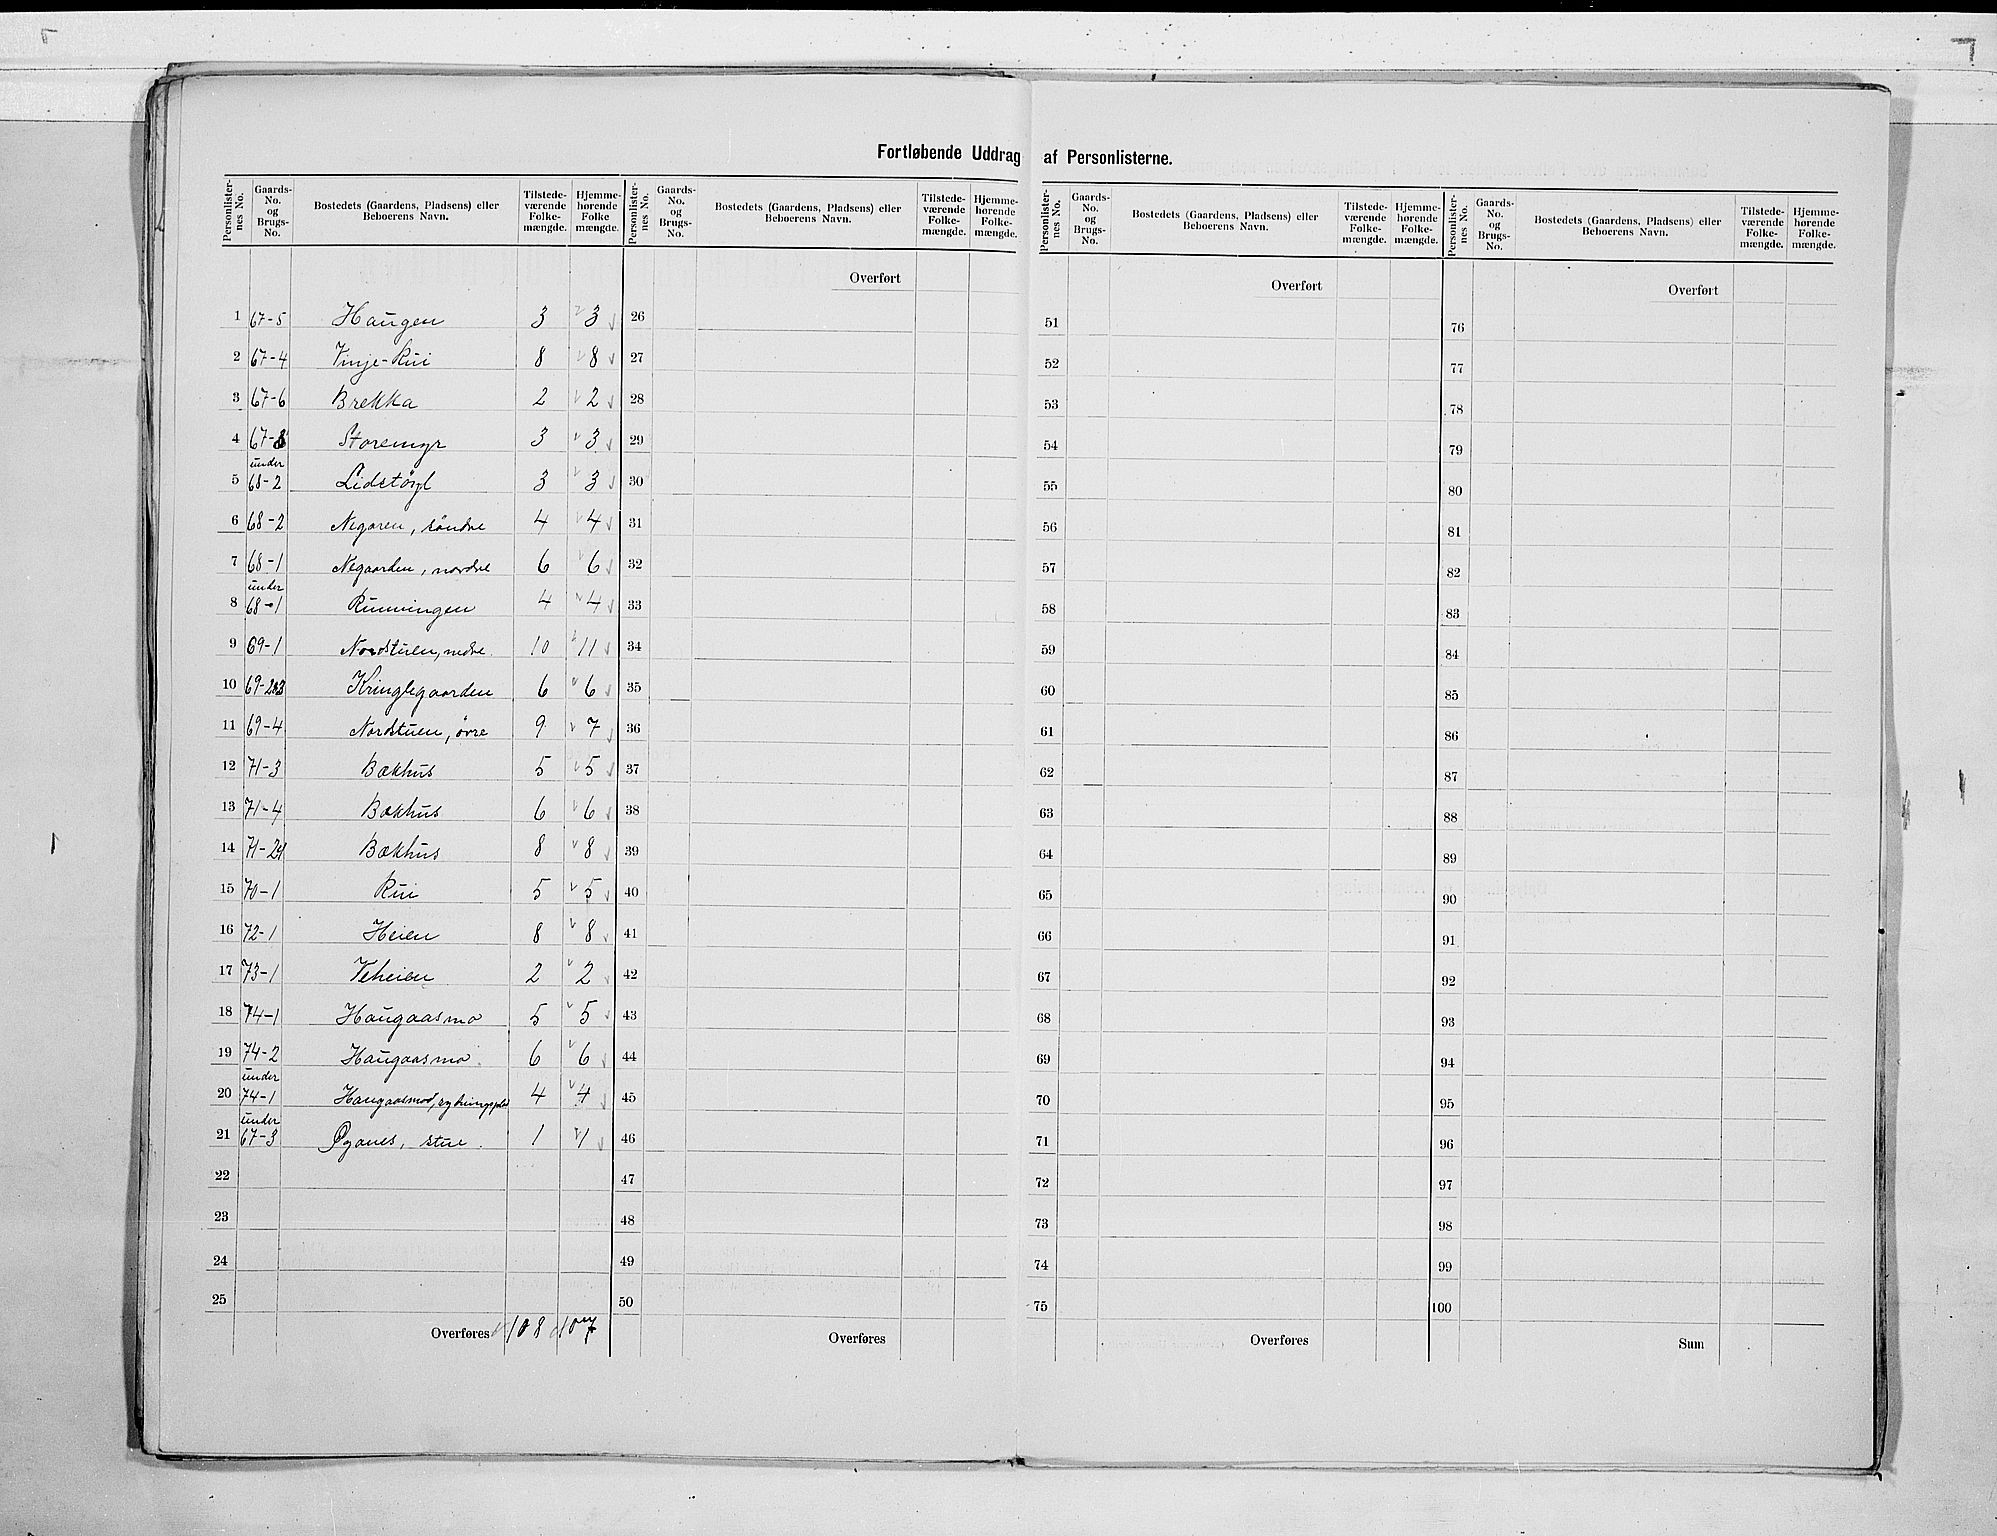 Fortløbende Uddrag af Personlisterne.
Personlister-nes No. Gaards-No. og Brugs-No. Bostedets (Gaardens, Pladsens) eller Beboerens Navn. Tilstede-værende Folke-mængde. Hjemme-hørende Folke mængde.
1 67-5 Haugen 3 3
2 67-4 Vinje-Rui 8 8
3 67-6 Brekka 2 2
4 67-8 Storemyr 3 3
5 under 68-2 Lidstøyl 3 3
6 68-2 Negaren, søndre 4 4
7 68-1 Negaarden, nordre 6 6
8 under 68-1 Runningen 4 4
9 69-1 Nordstuen, nedre. 10 11
10 69-2&3 Kringlegaarden 6 6
11 69-4 Nordstuen, øvre 9 7
12 71-3 Bækhus 5 5
13 71-4 Bækhus 6 6
14 71-24 Bækhus 8 8
15 70-1 Rui 5 5
16 72-1 Heien 8 8
17 73-1 Veheien 2 2
18 74-1 Haugaasmo 5 5
19 74-2 Haugaasmo. 6 6
20 under 74-1 Haugaasmo, rydningsplds 4 4
21 under 67-3 Øganes, stue. 1 1
22
23
24
25
Overføres 108 107
Personlister-nes No. Gaards-No. og Brugs-No. Bostedets (Gaardens, Pladsens) eller Beboerens Navn. Tilstede-værende Folke-mængde. Hjemme-hørende Folke-mængde.
Overført
26
27
28
29
30
31
32
33
34
35
36
37
38
39
40
41
42
43
44
45
46
47
48
49
50
Overføres
Personlister-nes No. Gaards-No. og Brugs-No. Bostedets (Gaardens, Pladsens) eller Beboerens Navn. Tilstede-værende Folke-mængde. Hjemme-hørende Folke-mængde.
Overført
51
52
53
54
55
56
57
58
59
60
61
62
63
64
65
66
67
68
69
70
71
72
73
74
75
Overføres
Personlister-nes No. Gaards-No. og Brugs-No. Bostedets (Gaardens, Pladsens) eller Beboerens Navn. Tilstede-værende Folke-mængde. Hjemme-hørende Folke-mængde.
Overført
76
77
78
79
80
81
82
83
84
85
86
87
88
89
90
91
92
93
94
95
96
97
98
99
100
Sum